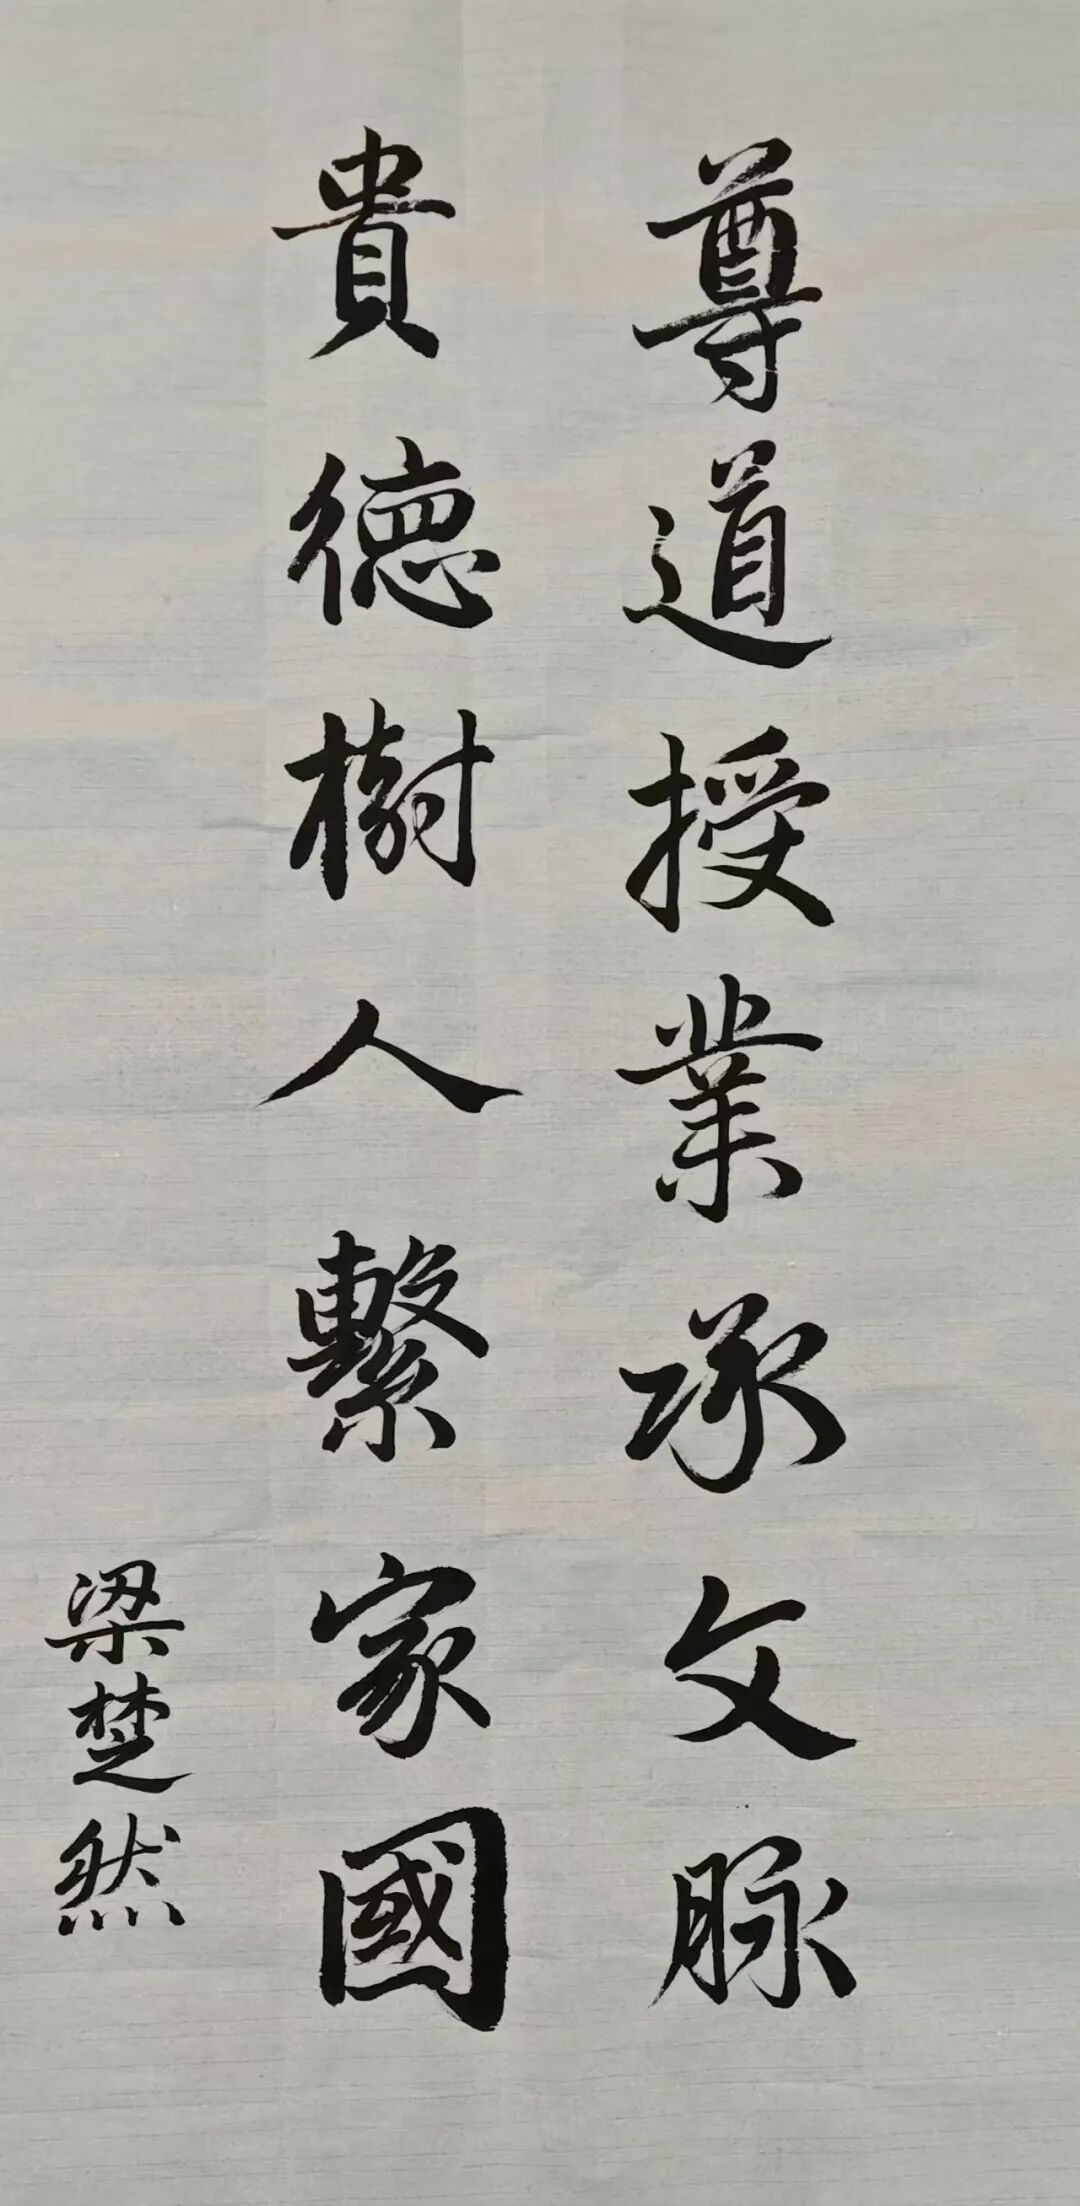 尊道授業承文脉
貴德樹人繫家國
梁楚然